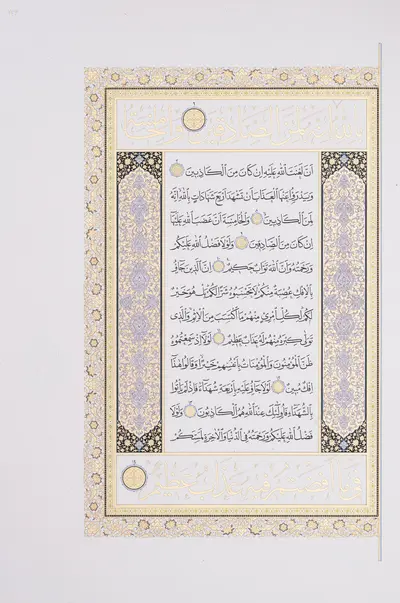 أَنَّ لَعْنَتَ اللَّهِ عَلَيْهِ إِنْ كَانَ مِنَ الْكَاذِبِينَ
وَيَدْرَؤُا عَنْهَا الْعَذَابَ أَنْ تَشْهَدَ أَرْبَعَ شَهَادَاتٍ بِاللَّهِ إِنَّهُ
لَمِنَ الْكَاذِبِينَ وَالْخَامِسَةَ أَنَّ غَضَبَ اللَّهِ عَلَيْهَا
إِنْ كَانَ مِنَ الصَّادِقِينَ وَلَوْلَا فَضْلُ اللَّهِ عَلَيْكُمْ
وَرَحْمَتُهُ وَأَنَّ اللَّهَ تَوَّابٌ حَكِيمٌ إِنَّ الَّذِينَ جَاؤُ
بِالْإِفْكِ عُصْبَةٌ مِنْكُمْ لَا تَحْسَبُوهُ شَرًّا لَكُمْ بَلْ هُوَ خَيْرٌ
لَكُمْ لِكُلِّ امْرِئٍ مِنْهُمْ مَا اكْتَسَبَ مِنَ الْإِثْمِ وَالَّذِي
تَوَلَّى كِبْرَهُ مِنْهُمْ لَهُ عَذَابٌ عَظِيمٌ لَوْلَا إِذْ سَمِعْتُمُوهُ
ظَنَّ الْمُؤْمِنُونَ وَالْمُؤْمِنَاتُ بِأَنْفُسِهِمْ خَيْرًا وَقَالُوا هَذَا
إِفْكٌ مُبِينٌ لَوْلَا جَاؤُ عَلَيْهِ بِأَرْبَعَةِ شُهَدَاءَ فَإِذْ لَمْ يَأْتُوا
بِالشُّهَدَاءِ فَأُولَئِكَ عِنْدَ اللَّهِ هُمُ الْكَاذِبُونَ وَلَوْلَا
فَضْلُ اللَّهِ عَلَيْكُمْ وَرَحْمَتُهُ فِي الدُّنْيَا وَالْآخِرَةِ لَمَسَّكُمْ